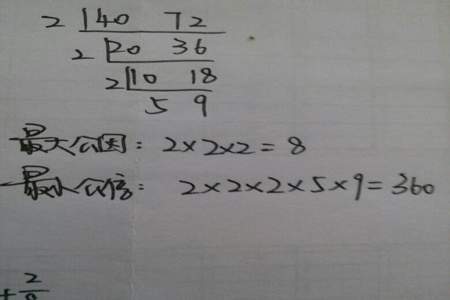 2 40 72
2 20 36
2 10 18
5 9
最大公因: 2×2×2=8
最小公倍: 2×2×2×5×9=360
+ 2